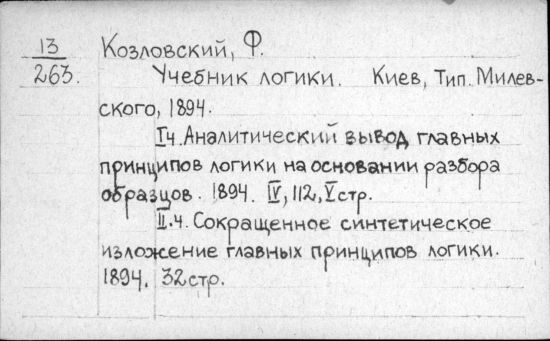 13 Козловский, Ф.
263. Учебник логики. Киев, Тип. Милев-
ского, 1894.
I ч. Аналитический вывод главных
принципов логики на основании разбора
образцов. 1894. IV, 112, V стр.
II. ч. Сокращенное синтетическое
изложение главных принципов логики.
1894. 32 стр.